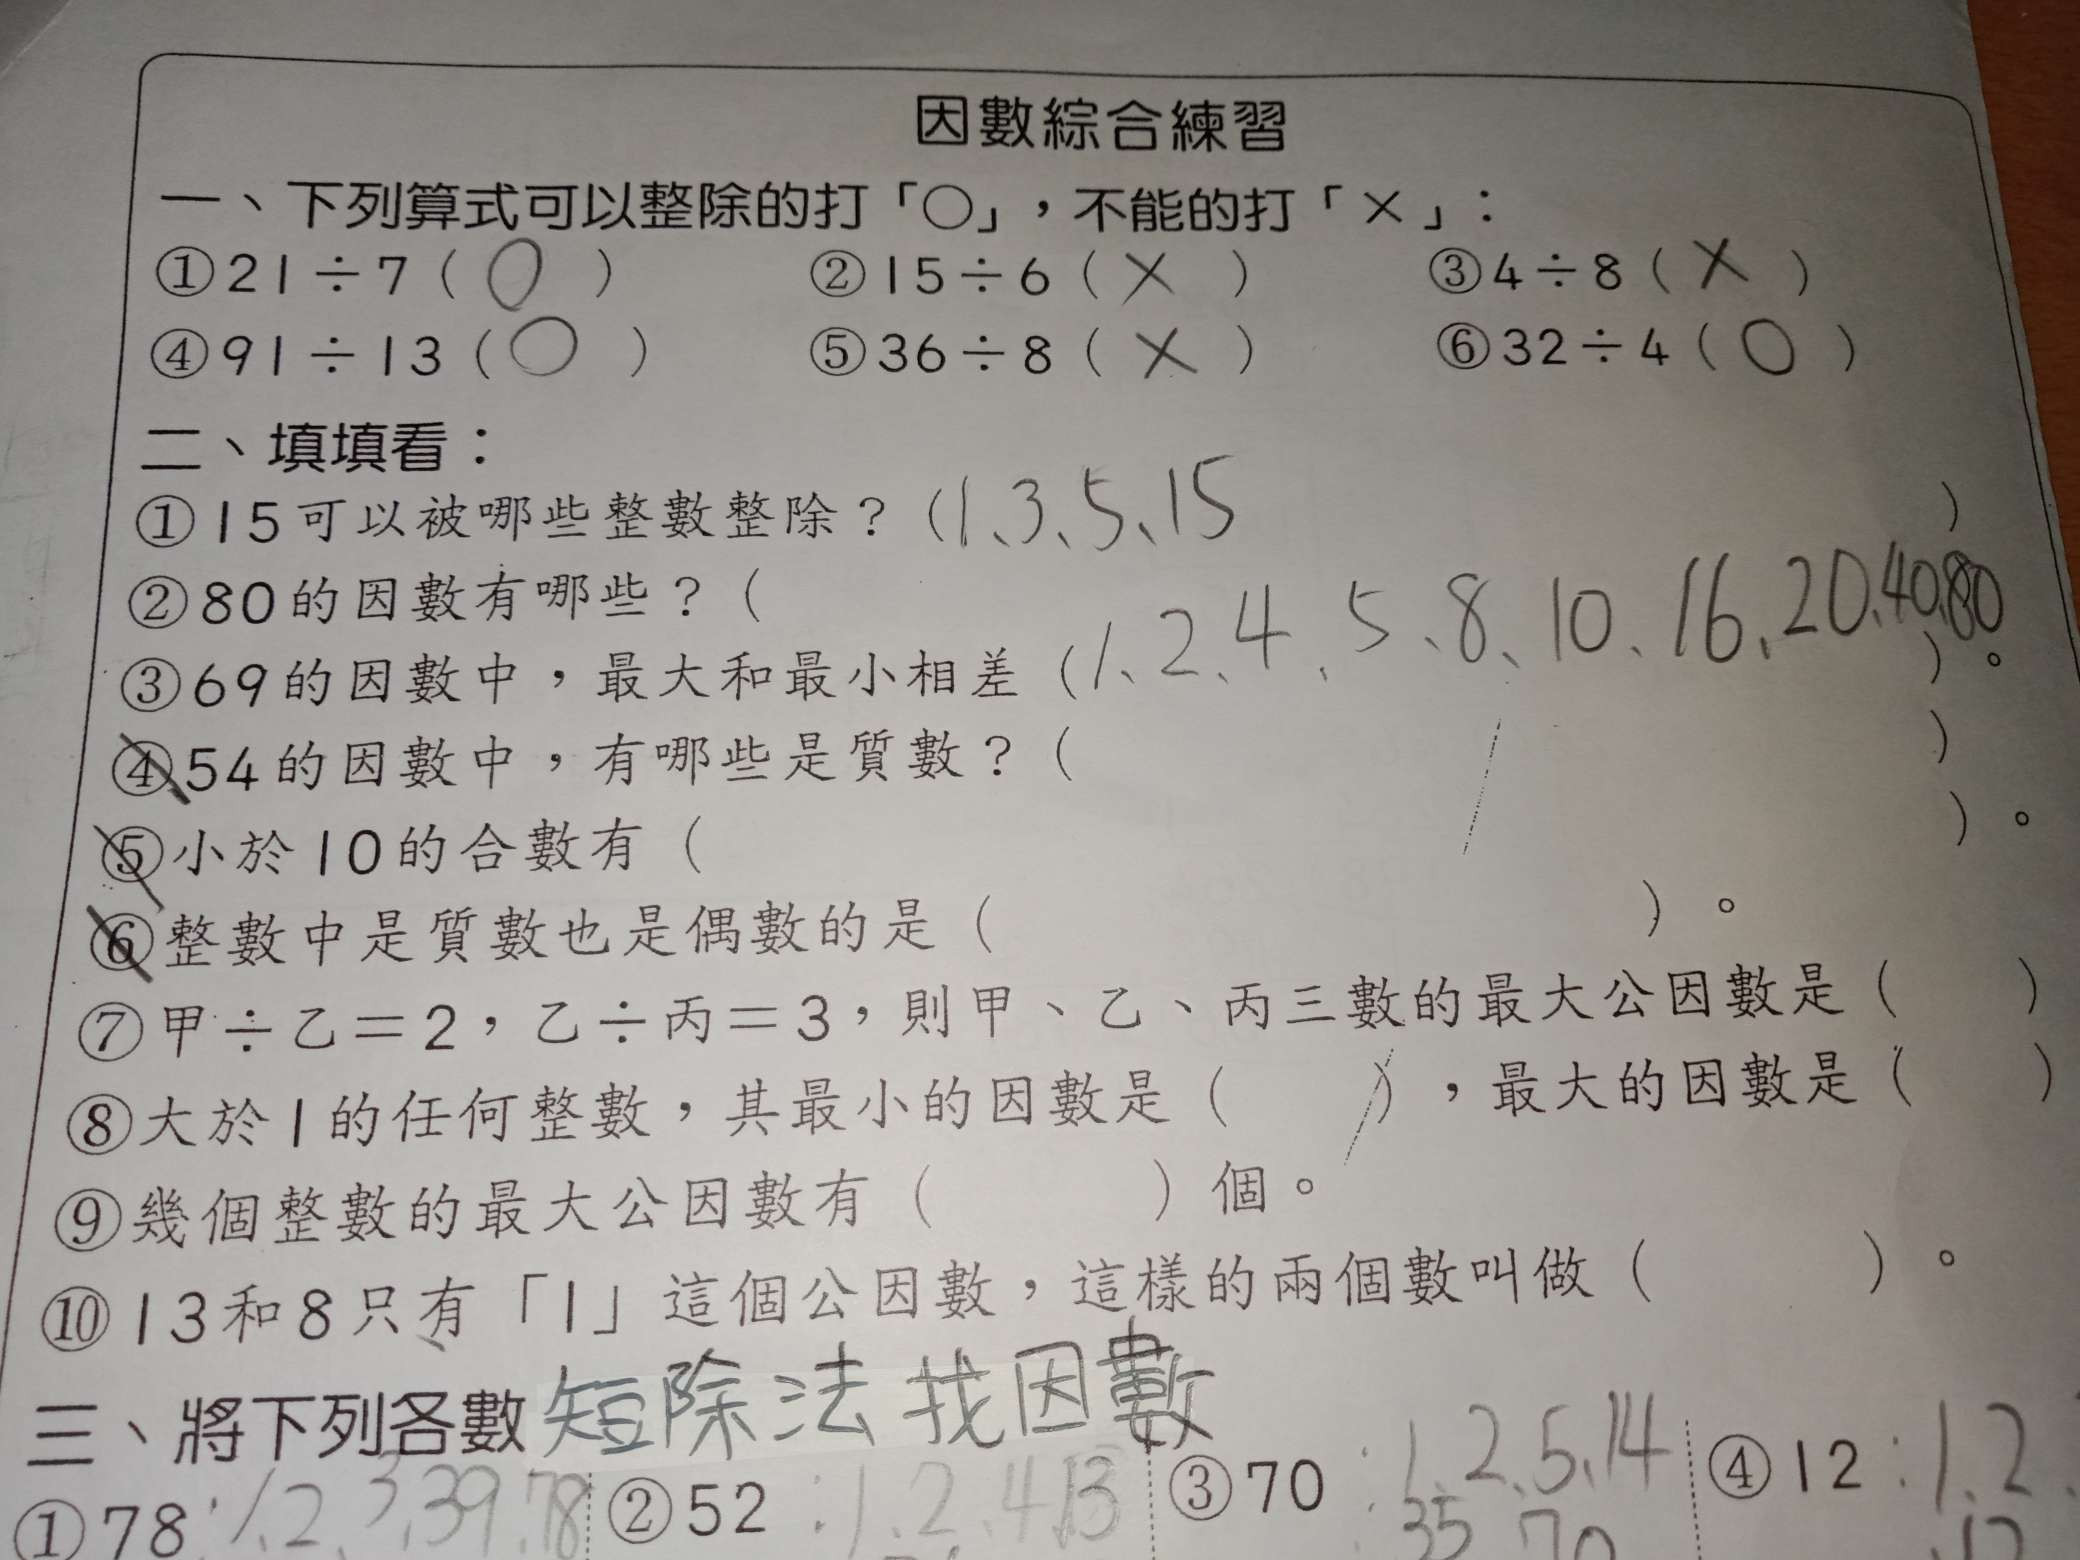 因數綜合練習
一、下列算式可以整除的打「○」，不能的打「×」：
①21÷7（○）　②15÷6（×）　③4÷8（×）
④91÷13（○）　⑤36÷8（×）　⑥32÷4（○）
二、填填看：
①15可以被哪些整數整除？（1、3、5、15）
②80的因數有哪些？（1、2、4、5、8、10、16、20、40、80）
③69的因數中，最大和最小相差（　）。
④54的因數中，有哪些是質數？（　）
⑤小於10的合數有（　）。
⑥整數中是質數也是偶數的是（　）。
⑦甲÷乙＝2，乙÷丙＝3，則甲、乙、丙三數的最大公因數是（　）
⑧大於1的任何整數，其最小的因數是（　），最大的因數是（　）
⑨幾個整數的最大公因數有（　）個。
⑩13和8只有「1」這個公因數，這樣的兩個數叫做（　）。
三、將下列各數短除法找因數
①78：1、2、3、39、78　②52：1、2、4、13　③70：1、2、5、14　④12：1、2、
35、70